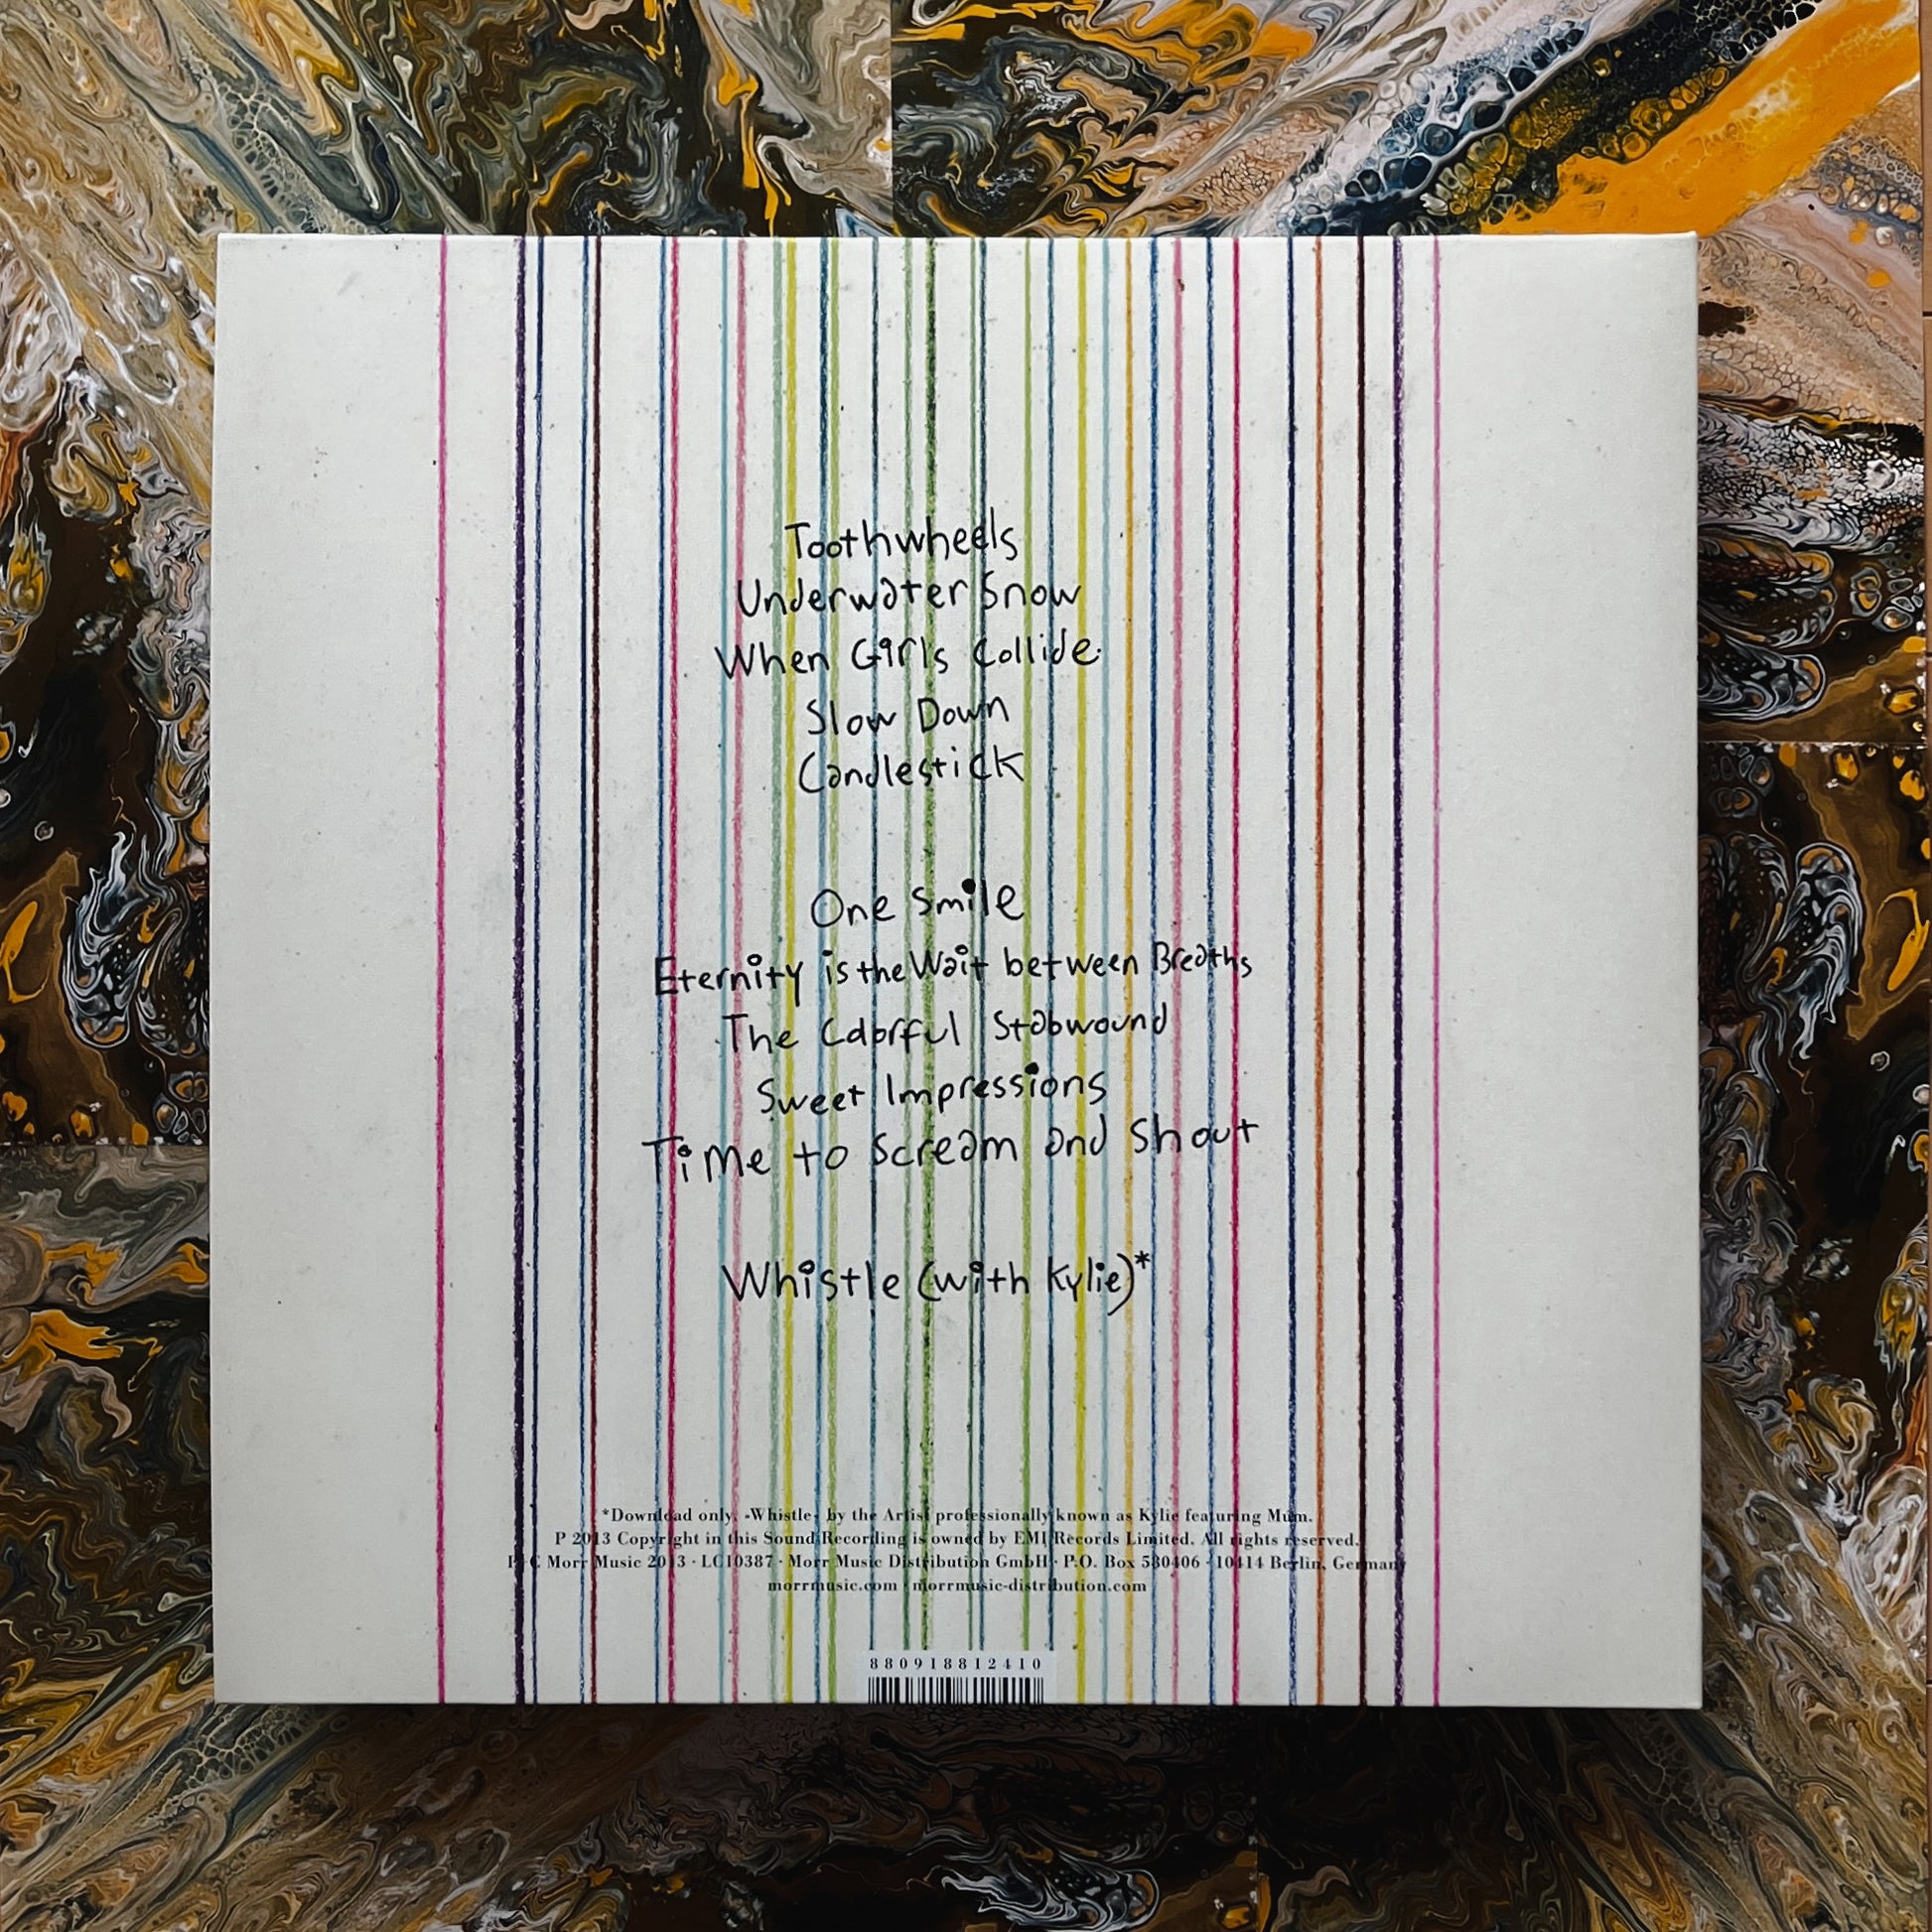 Toothwheels
Underwater Snow
When Girls Collide
Slow Down
Candlestick
One Smile
Eternity is the Wait between Breaths
The Colorful Stabwound
Sweet Impressions
Time to Scream and Shout
Whistle (with Kylie)*
*Download only. -Whistle- by the Artist professionally known as Kylie featuring Múm.
P 2013 Copyright in this Sound Recording is owned by EMI Records Limited. All rights reserved.
P + C Morr Music 2013 · LC10387 · Morr Music Distribution GmbH · P.O. Box 580406 · 10414 Berlin, Germany
morrmusic.com · morrmusic-distribution.com
880918812410